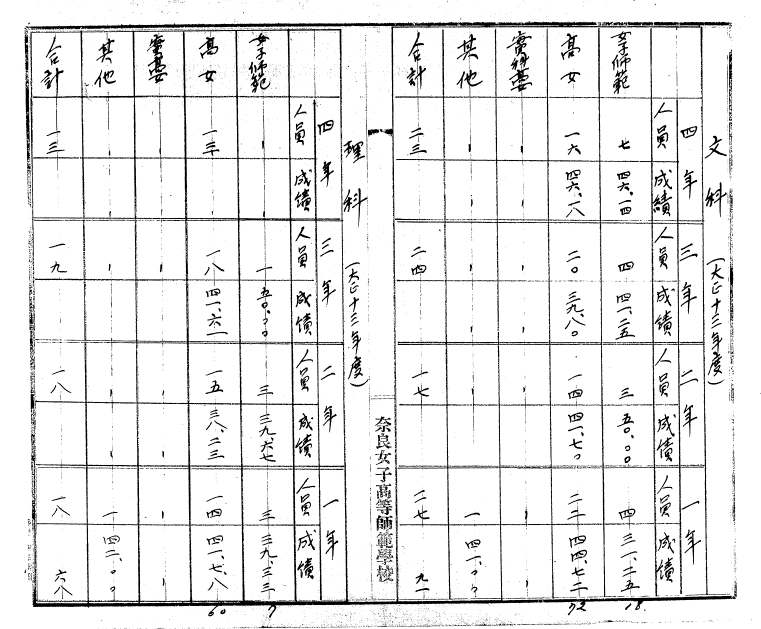 文科 (大正十三年度)
四年 三年 二年 一年
人員 成績 人員 成績 人員 成績 人員 成績
女子師範 七 四六.一四 四 四一.二五 三 五〇.〇〇 四 三一.二五 18
高女 一六 四六.一八 二〇 三九.八〇 一四 四一.七〇 二二 四四.七二 72
實科高女
其他 一 四一.〇〇
合計 二三 二四 一七 二七 九一
奈良女子高等師範學校
理科 (大正十三年度)
四年 三年 二年 一年
人員 成績 人員 成績 人員 成績 人員 成績
女子師範 一 五〇.〇〇 三 三九.六七 三 三九.三三 7
高女 一三 一八 四一.六一 一五 三八.二三 一四 四一.七八 60
實科高女
其他 一 四二.〇〇
合計 一三 一九 一八 一八 六八